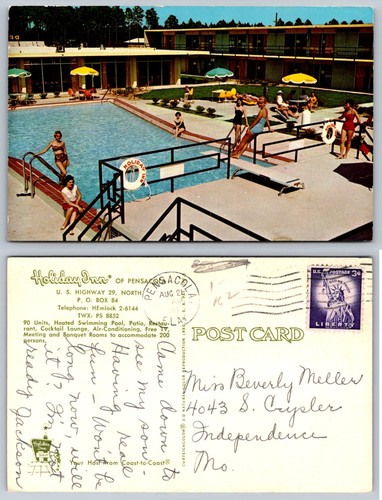 HOLIDAY INN
Holiday Inn® OF PENSACOLA
U. S. HIGHWAY 29, NORTH
P. O. BOX 84
Telephone: HEmlock 2-6144
TWX: PS 8852
90 Units, Heated Swimming Pool, Patio, Restaurant, Cocktail Lounge, Air-Conditioning, Free TV,
Meeting and Banquet Rooms to accommodate 200
persons.
Your Host From Coast-to-Coast®
PENSACOLA
AUG 2
FLA.
U.S. POSTAGE
3¢
LIBERTY
POST CARD
Came down to
see my son -
Having real
fun - Won't be
long now, will
it? I'm most
ready Jackson
Miss Beverly Meller
4043 S. Crysler
Independence
Mo.